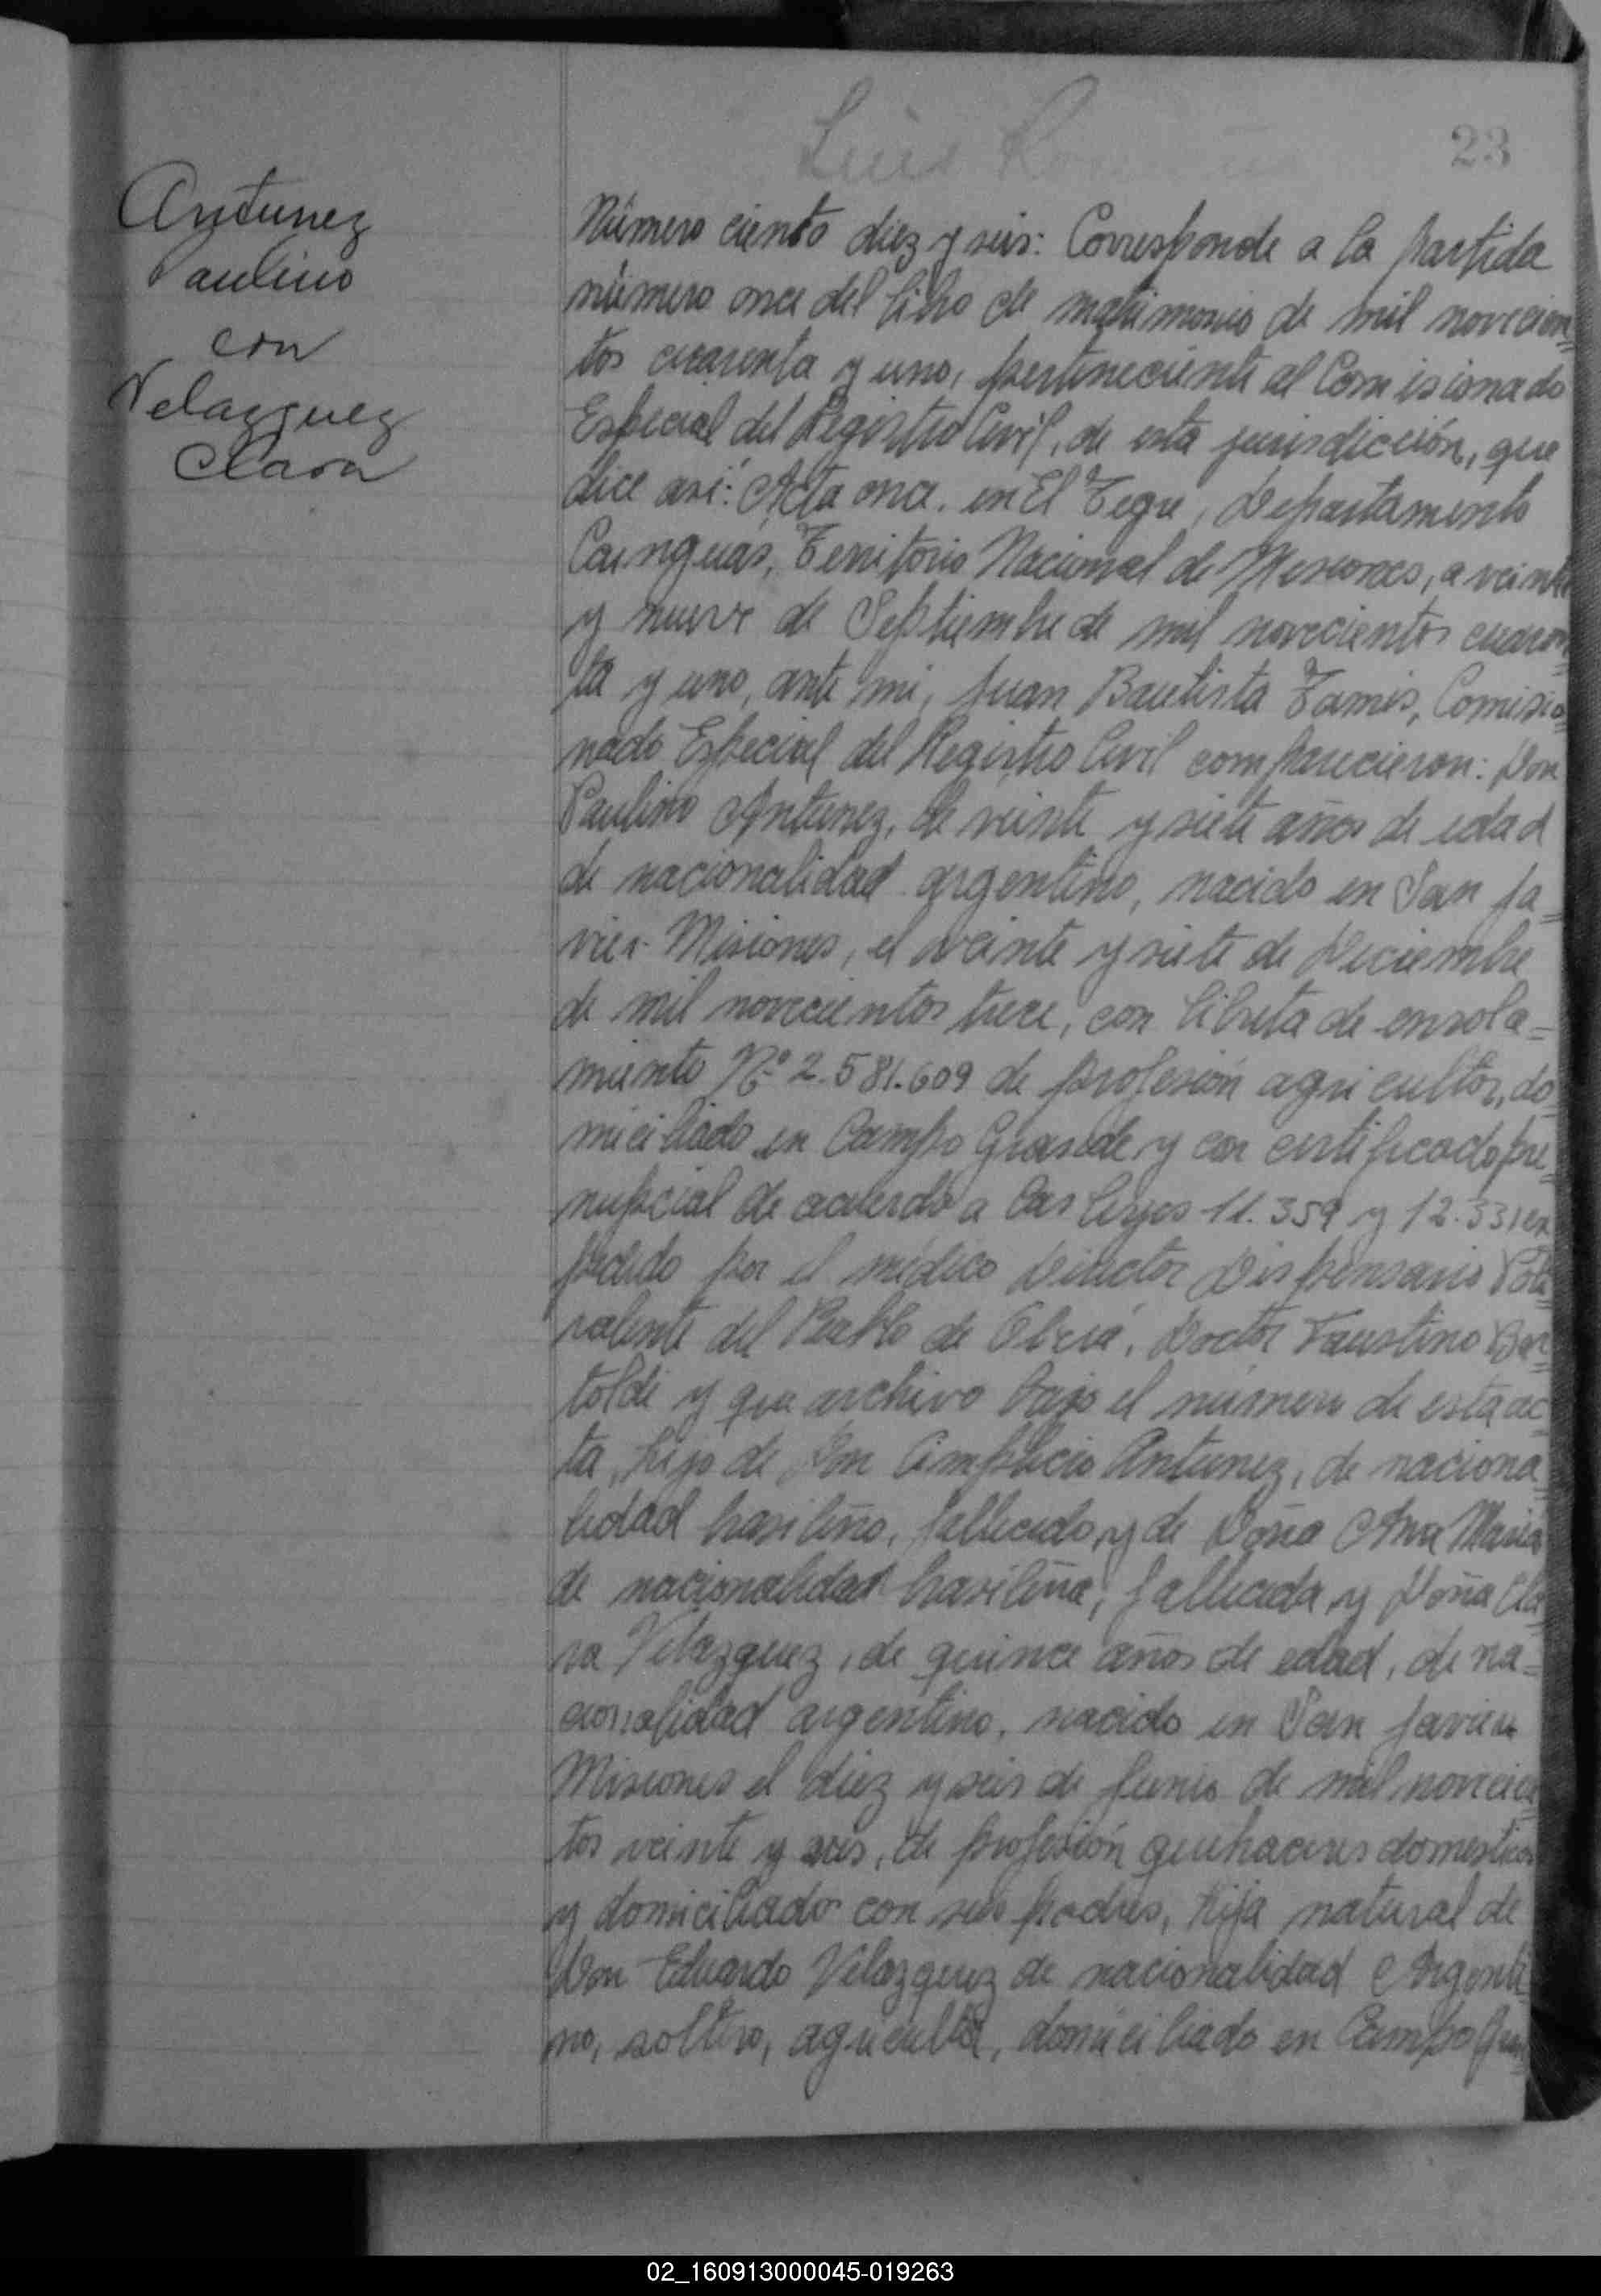 23
Antunez
Paulino
con
Velazquez
Clara
Número ciento diez y seis: Corresponde a la partida
número once del libro de matrimonio de mil novecien=
tos cuarenta y uno, perteneciente al Comisionado
Especial del Registro Civil, de esta jurisdicción, que
dice así: Acta once. en El Tegu, Departamento
Cainguas, Territorio Nacional de Misiones, a veinte
y nueve de Septiembre de mil novecientos cuaren=
ta y uno, ante mi, Juan Bautista Tamis, Comisio=
nado Especial del Registro Civil comparecieron: Don
Paulino Antunez, de veinte y siete años de edad
de nacionalidad argentino, nacido en San Ja=
vier Misiones, el veinte y siete de Diciembre
de mil novecientos trece, con libreta de enrola=
miento Nº 2.581.609 de profesión agricultor, do=
miciliado en Campo Grande y con certificado pre=
nupcial de acuerdo a las leyes 11.359 y 12.331 ex
pedido por el médico Director Dispensario Poli=
valente del Pueblo de Oberá, Doctor Faustino Ber=
toldi y que archivo bajo el número de esta ac=
ta, hijo de Don Cimplicio Antunez, de naciona=
lidad brasileño, fallecido, y de Doña Ana Maria
de nacionalidad brasileña, fallecida y Doña Cla=
ra Velazquez, de quince años de edad, de na=
cionalidad argentino, nacido en San Javier
Misiones el diez y seis de Junio de mil novecien=
tos veinte y seis, de profesión quehaceres domesticos
y domiciliado con sus padres, hija natural de
Don Eduardo Velazquez de nacionalidad Argenti=
no, soltero, agricultor, domiciliado en Campo Gran=
02_160913000045-019263